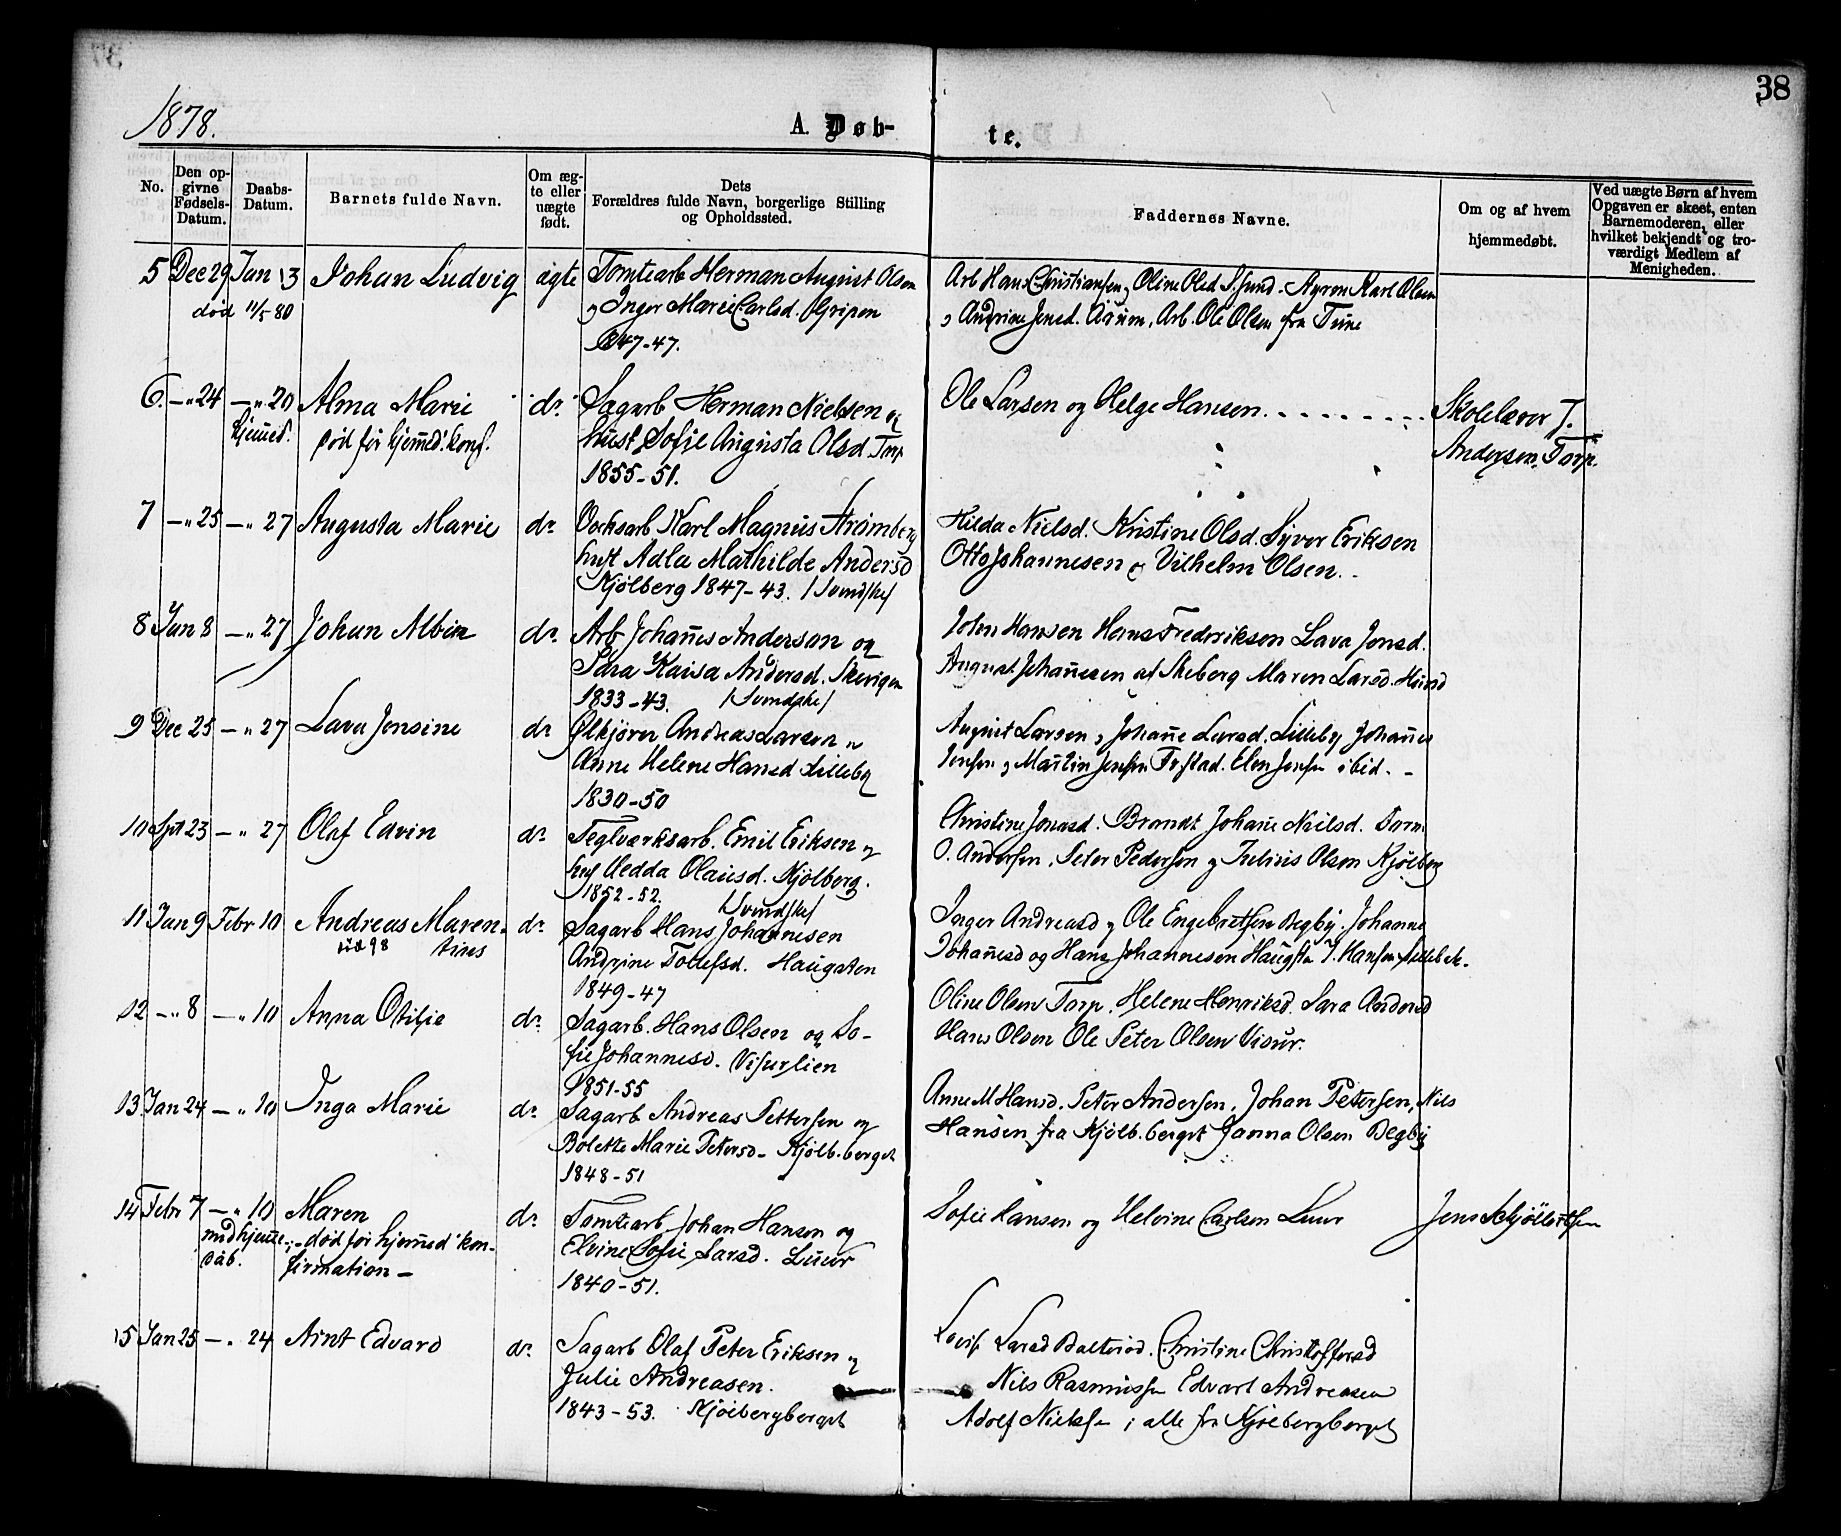 38
1878.
A. Døb- te.
No.
Den op-
givne
Fødsels-
Datum.
Daabs-
Datum.
Barnets fulde Navn.
Om æg-
te eller
uægte
født.
Dets
Forældres fulde Navn, borgerlige Stilling
og Opholdssted.
Faddernes Navne.
Om og af hvem
hjemmedøbt.
Ved uægte Børn af hvem
Opgaven er skeet, enten
Barnemoderen, eller
hvilket bekjendt og tro-
værdigt Medlem af
Menigheden.
5 Dec 29 Jan 13 Johan Ludvig ægte
død 11/5 80
Tomtearb Herman August Olsen
og Inger Marie Carlsd. Gripen
1847-47.
Arb Hans Christiansen og Oline Olsd Karl Olsen
og Andrine Jensd. Arb. Ole Olsen fra Tune
6. -"24 -"20 Alma Marie do.
hjemed. død før hjemed. konf.
Sagarb Herman Nielsen og
hust Sofie Augusta Olsd Torp
1855-51.
Ole Larsen og Helge Hansen.
Skolelærer T.
Andersen, Torp.
7 -"25 -"27 Augusta Marie do
Karl Magnus Strömberg
hust Adla Mathilde Andersd
Kjølberg 1847-43. /Svendske/
Hilda Nielsd. Kristine Olsd. Syver Eriksen
Otto Johannesen og Vilhelm Olsen.
8 Jan 8 -"27 Johan Albin do.
Arb Johannes Anderson og
Sara Kaisa Andersd.
1833-43. /Svendske/
John Hansen Hans Frederiksen Lava Jensd.
August Johannesen af Skeberg Maren Larsd.
9 Dec 25 -"27 Lava Jensine do
Ølkjører Andreas Larsen og
Anne Helene Hansd Lilleby
1830-50
August Larsen og Johanne Larsd. Lilleby Johannes
Jensen og Martin Jensen Elen Jensen ibid. -
10 Spt 23 -"27 Olaf Edvin do
Teglværksarb. Emil Eriksen og
hust Hedda Olausd. Kjölberg.
1852-52. /Svendske/
Christine Jonasd. Brandt Johanne Nielsd.
O. Andersen, Peter Pedersen og Julius Olsen Kjölberg
11 Jan 9 Febr 10 Andreas Maren- do.
ud 98 tines
Sagarb Hans Johannesen
Andrine Tollefsd. Haugsten
1849-47
Inger Andreasd og Ole Engebretsen Begby. Johanne
Johannesd og Hans Johannesen J. Hansen
12 -"8 -"10 Anna Otilie do.
Sagarb. Hans Olsen og So-
fie Johannesd. Visurlien
1851-55
Oline Olsen Torp. Helene Henriksd. Sara Andersd
Hans Olsen Ole Peter Olsen Visur.
13. Jan 24 -"10 Inga Marie do.
Sagarb Andreas Pettersen og
Bolette Marie Petersd - Kjölb.berget
1848-51
Anne M Hansd. Peter Andersen, Johan Petersen, Nils
Hansen fra Kjölb.berget Janna Olsen Begby
14 Febr 7 -"10 Maren do.
med hjemme- død før hjemmed' kon-
dåb. firmation -
Tomtearb Johan Hansen og
Elvine Sofie Larsd. Luur
1840-51.
Sofie Hansen og Helvine Carlsen Luur
Jens
15 Jan 25 -"24 Arnt Edvard do.
Sagarb Olaf Peter Eriksen og
Julie Andreasen.
1843-53. Kjölbergberget
Lovise Larsd Christine Christoffersd
Nils Rasmussen Edvart Andreasen
Adolf Nielsen; alle fra Kjølbergberget